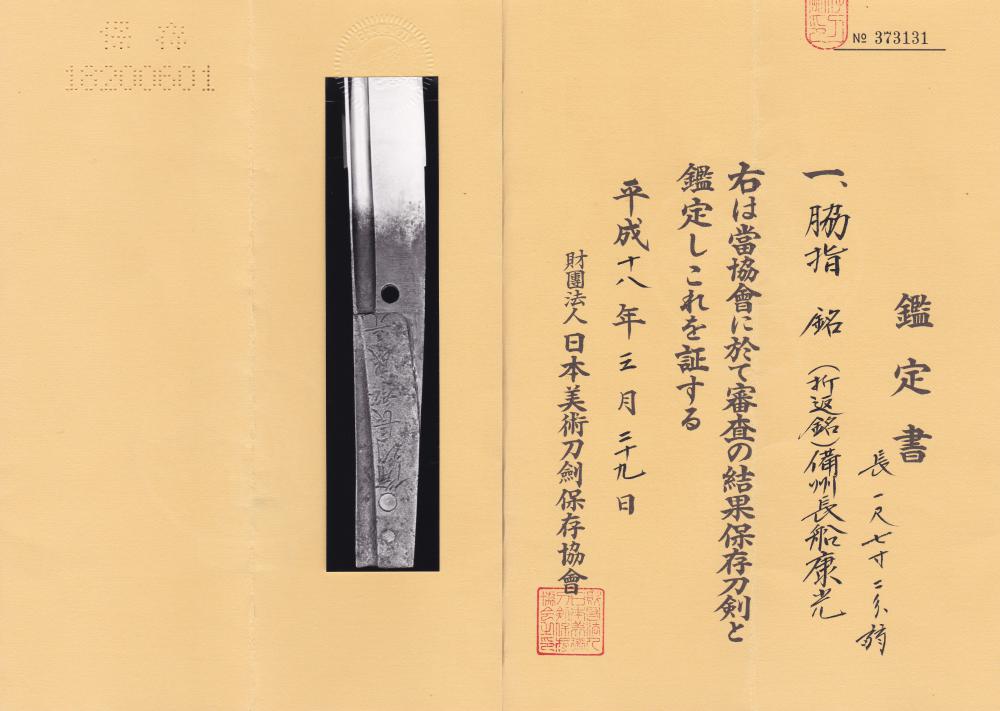 № 373131
鑑定書
長一尺七寸二分弱
一、脇指 銘（折返銘）備州長船康光
右は當協會に於て審査の結果保存刀剣と
鑑定しこれを証する
平成十八年三月二十九日
財團法人日本美術刀劍保存協會
保存
18200601